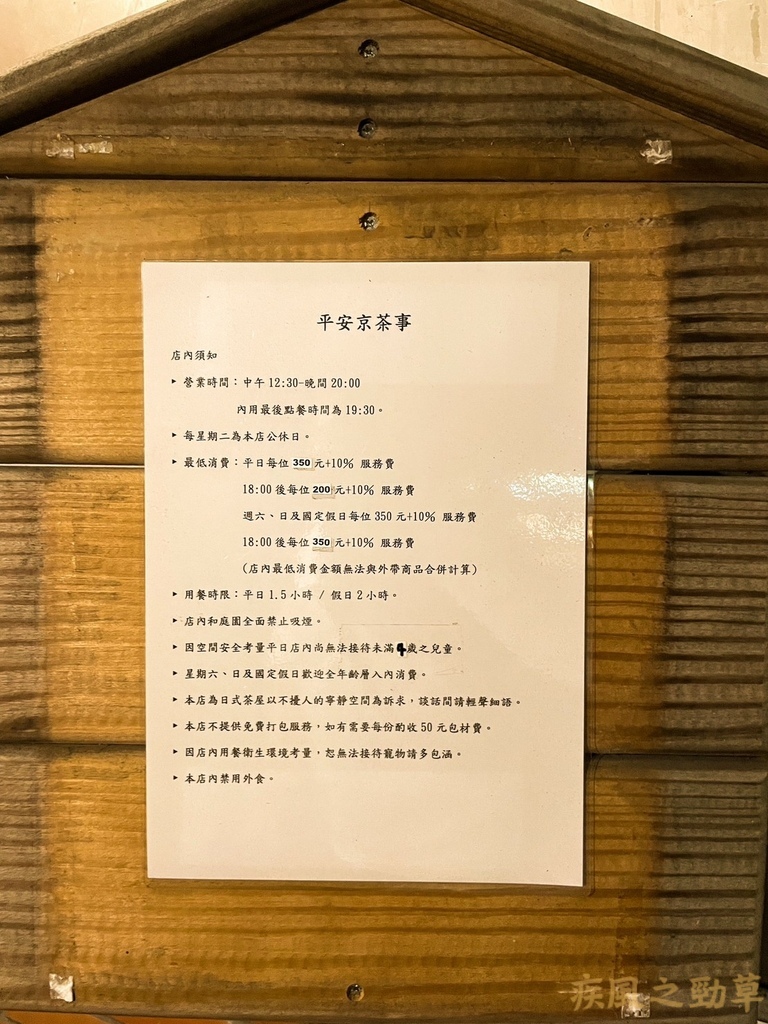 平安京茶事
店內須知
▸ 營業時間：中午 12:30-晚間 20:00
內用最後點餐時間為 19:30。
▸ 每星期二為本店公休日。
▸ 最低消費：平日每位 350 元+10% 服務費
18:00 後每位 200 元+10% 服務費
週六、日及國定假日每位 350 元+10% 服務費
18:00 後每位 350 元+10% 服務費
(店內最低消費金額無法與外帶商品合併計算)
▸ 用餐時限：平日 1.5 小時 / 假日 2 小時。
▸ 店內和庭園全面禁止吸煙。
▸ 因空間安全考量平日店內尚無法接待未滿 4 歲之兒童。
▸ 星期六、日及國定假日歡迎全年齡層入內消費。
▸ 本店為日式茶屋以不擾人的寧靜空間為訴求，談話間請輕聲細語。
▸ 本店不提供免費打包服務，如有需要每份酌收 50 元包材費。
▸ 因店內用餐衛生環境考量，恕無法接待寵物請多包涵。
▸ 本店內禁用外食。
疾風之勁草